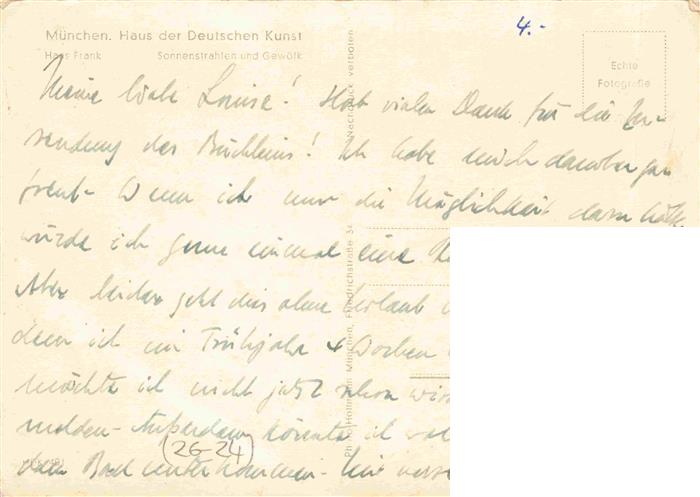 München. Haus der Deutschen Kunst
Hans Frank Sonnenstrahlen und Gewölk
4.-
Echte
Fotografie
Nachdruck verboten
Meine liebe Louise! Hab vielen Dank für die Zu-
sendung des Büchleins! Ich habe mich darüber ge-
freut- Wenn ich nur die Möglichkeit dazu hätte
würde ich gerne einmal eine
Aber leider geht dies ohne Urlaub
dem ich im Frühjahr 4 Wochen
möchte ich nicht jetzt schon
melden- Außerdem könnte ich
(26-24)
dem Bad unterkommen-
Photo-Hoffmann, München, Friedrichstraße 34